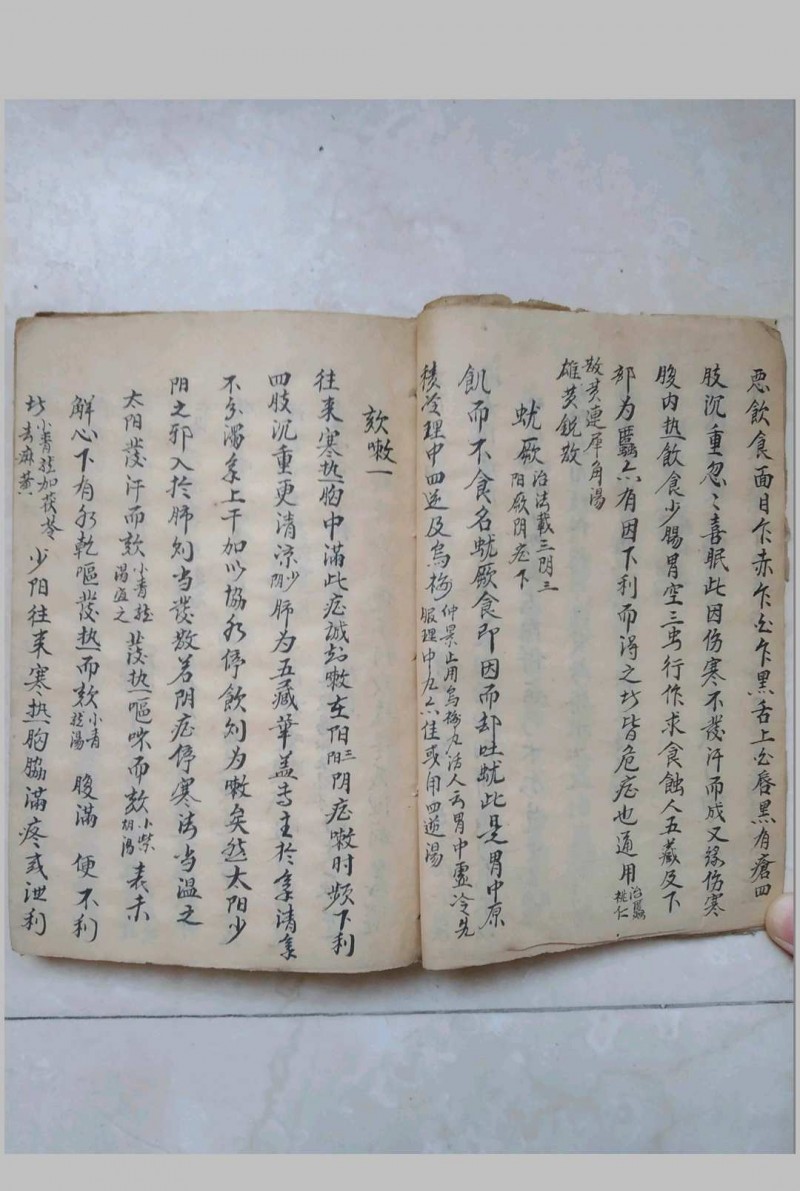 恶飲食面目乍赤乍白乍黑舌上白唇黑有瘡四
肢沉重忽〻喜眠此因伤寒不發汗而成又缘伤寒
腹内热飲食少腸胃空三虫行作求食蝕人五藏及下
部为䘌亦有因下利而得之者皆危症也通用治䘌桃仁
散黄連犀角湯
雄黄鋭散
蚘厥 治法載三阴三
阳厥阴症下
飢而不食名蚘厥食即因而却吐蚘此是胃中原
積冷理中四逆及烏梅 仲景止用烏梅丸活人云胃中虚冷先
服理中丸亦佳或用四逆湯
欬嗽一
往来寒热胸中滿此症誠知嗽在阳三阳阴症嗽时频下利
四肢沉重更清涼少阴肺为五藏華盖专主於氣清氣
不分濁氣上干加以協水停飲则为嗽矣然太阳少
阳之邪入於肺则当發散若阴症停寒法当温之
太阳發汗而欬小青龍湯温之發热嘔哕而欬小柴胡湯表未
解心下有水乾嘔發热而欬小青龍湯 腹滿 便不利
者小青龍加茯苓去麻黄 少阳往来寒热胸脇滿疼或泄利